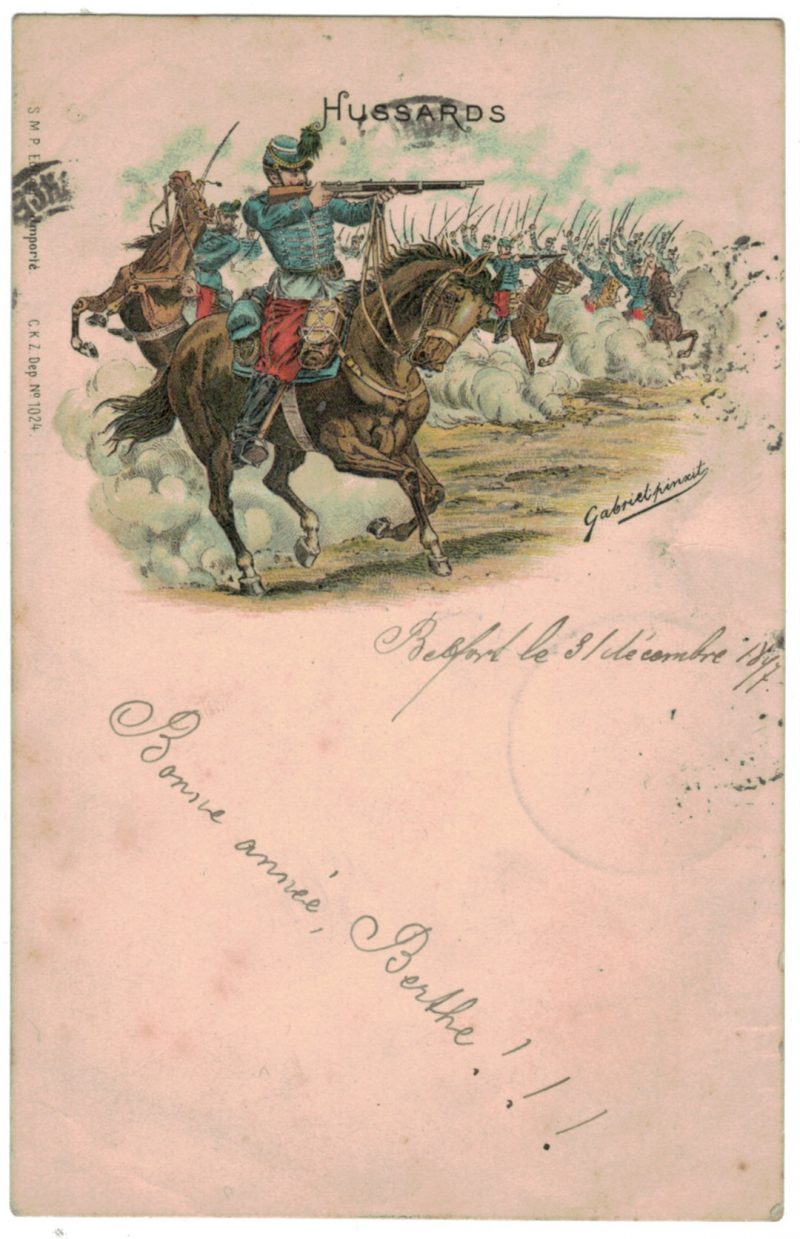 HUSSARDS
S.M.P. importé C.K.Z. Dep. Nº 1024.
Gabriel pinxit
Belfort le 31 décembre 1897.
Bonne année, Berthe!!!